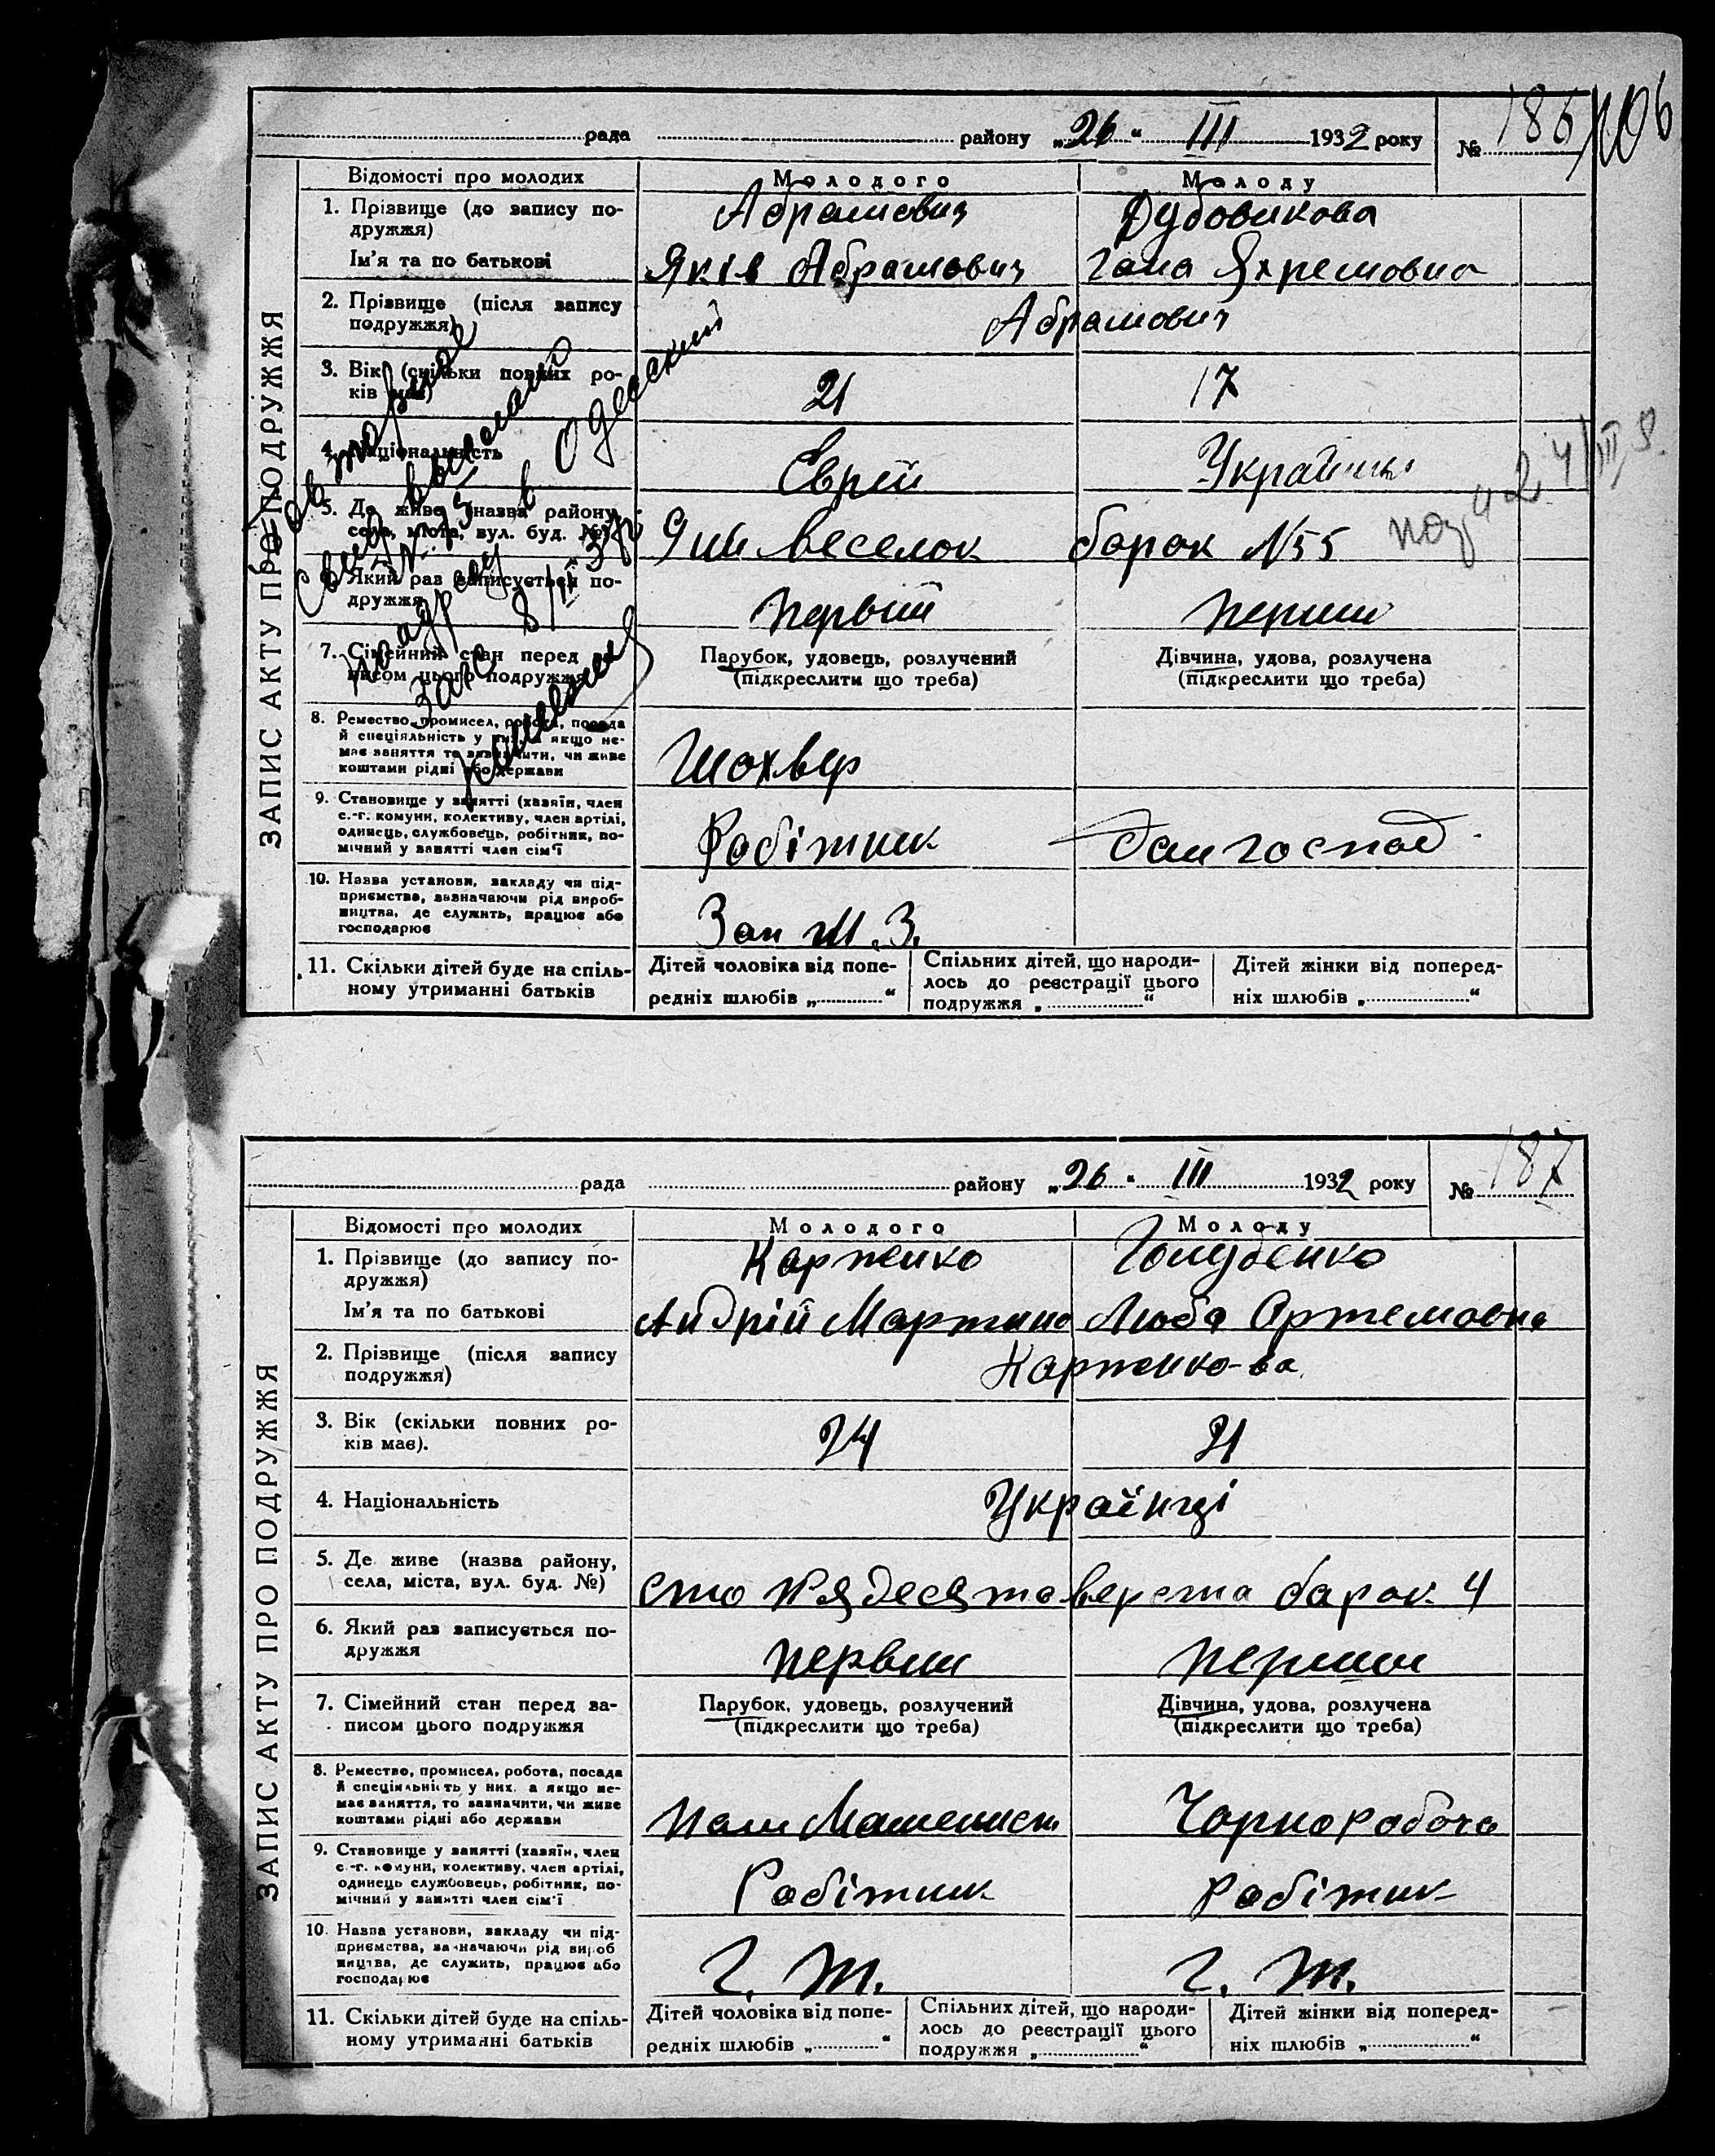 рада району „26“ III 1932 року № 186
106
ЗАПИС АКТУ ПРО ПОДРУЖЖЯ
Відомості про молодих Молодого Молоду
1. Прізвище (до запису по-
дружжя) Абрамович Дубовикова
Ім'я та по батькові Яків Абрамович Гана Яхремовна
2. Прізвище (після запису
подружжя) Абрамович
3. Вік (скільки повних ро-
ків має) 21 17
4. Національність Єврей
5. Де живе (назва району,
села, міста, вул. буд. №) барак №55
6. Який раз записується по-
дружжя первий перший
7. Сімейний стан перед за-
писом цього подружжя
Парубок, удовець, розлучений
(підкреслити що треба)
Дівчина, удова, розлучена
(підкреслити що треба)
8. Ремество, промисел, робота, посада
й спеціяльність у них, а якщо не-
має заняття то зазначити, чи живе
коштами рідні або держави Шохвер
9. Становище у занятті (хазяїн, член
с.-г. комуни, колективу, член артілі,
одинець, службовець, робітник, по-
мічний у занятті член сім'ї Робітник Дом господ
10. Назва установи, закладу чи під-
приємства, зазначаючи рід вироб-
ництва, де служить, працює або
господарює
11. Скільки дітей буде на спіль-
ному утриманні батьків
Дітей чоловіка від попе-
редніх шлюбів „ “
Спільних дітей, що народи-
лось до реєстрації цього
подружжя „ “
Дітей жінки від поперед-
ніх шлюбів „ “
рада району „26“ III 1932 року № 187
ЗАПИС АКТУ ПРО ПОДРУЖЖЯ
Відомості про молодих Молодого Молоду
1. Прізвище (до запису по-
дружжя) Карпенко Голубенко
Ім'я та по батькові Андрій Мартино Люба Артемовна
2. Прізвище (після запису
подружжя) Карпенко-ва
3. Вік (скільки повних ро-
ків має). 24 21
4. Національність Українці
5. Де живе (назва району,
села, міста, вул. буд. №) сто п'ядесята верста барак 4
6. Який раз записується по-
дружжя первий перший
7. Сімейний стан перед за-
писом цього подружжя
Парубок, удовець, розлучений
(підкреслити що треба)
Дівчина, удова, розлучена
(підкреслити що треба)
8. Ремество, промисел, робота, посада
й спеціяльність у них, а якщо не-
має заняття, то зазначити, чи живе
коштами рідні або держави Пом Машенист Чорноробоча
9. Становище у занятті (хазяїн, член
с.-г. комуни, колективу, член артілі,
одинець службовець, робітник, по-
мічний у занятті член сім'ї Робітник Робітник
10. Назва установи, закладу чи під-
приємства, зазначаючи рід вироб
ництва, де служить, працює або
господарює Г. Т. Г. Т.
11. Скільки дітей буде на спіль-
ному утриманні батьків
Дітей чоловіка від попе-
редніх шлюбів „ “
Спільних дітей, що народи-
лось до реєстрації цього
подружжя „ “
Дітей жінки від поперед-
ніх шлюбів „ “